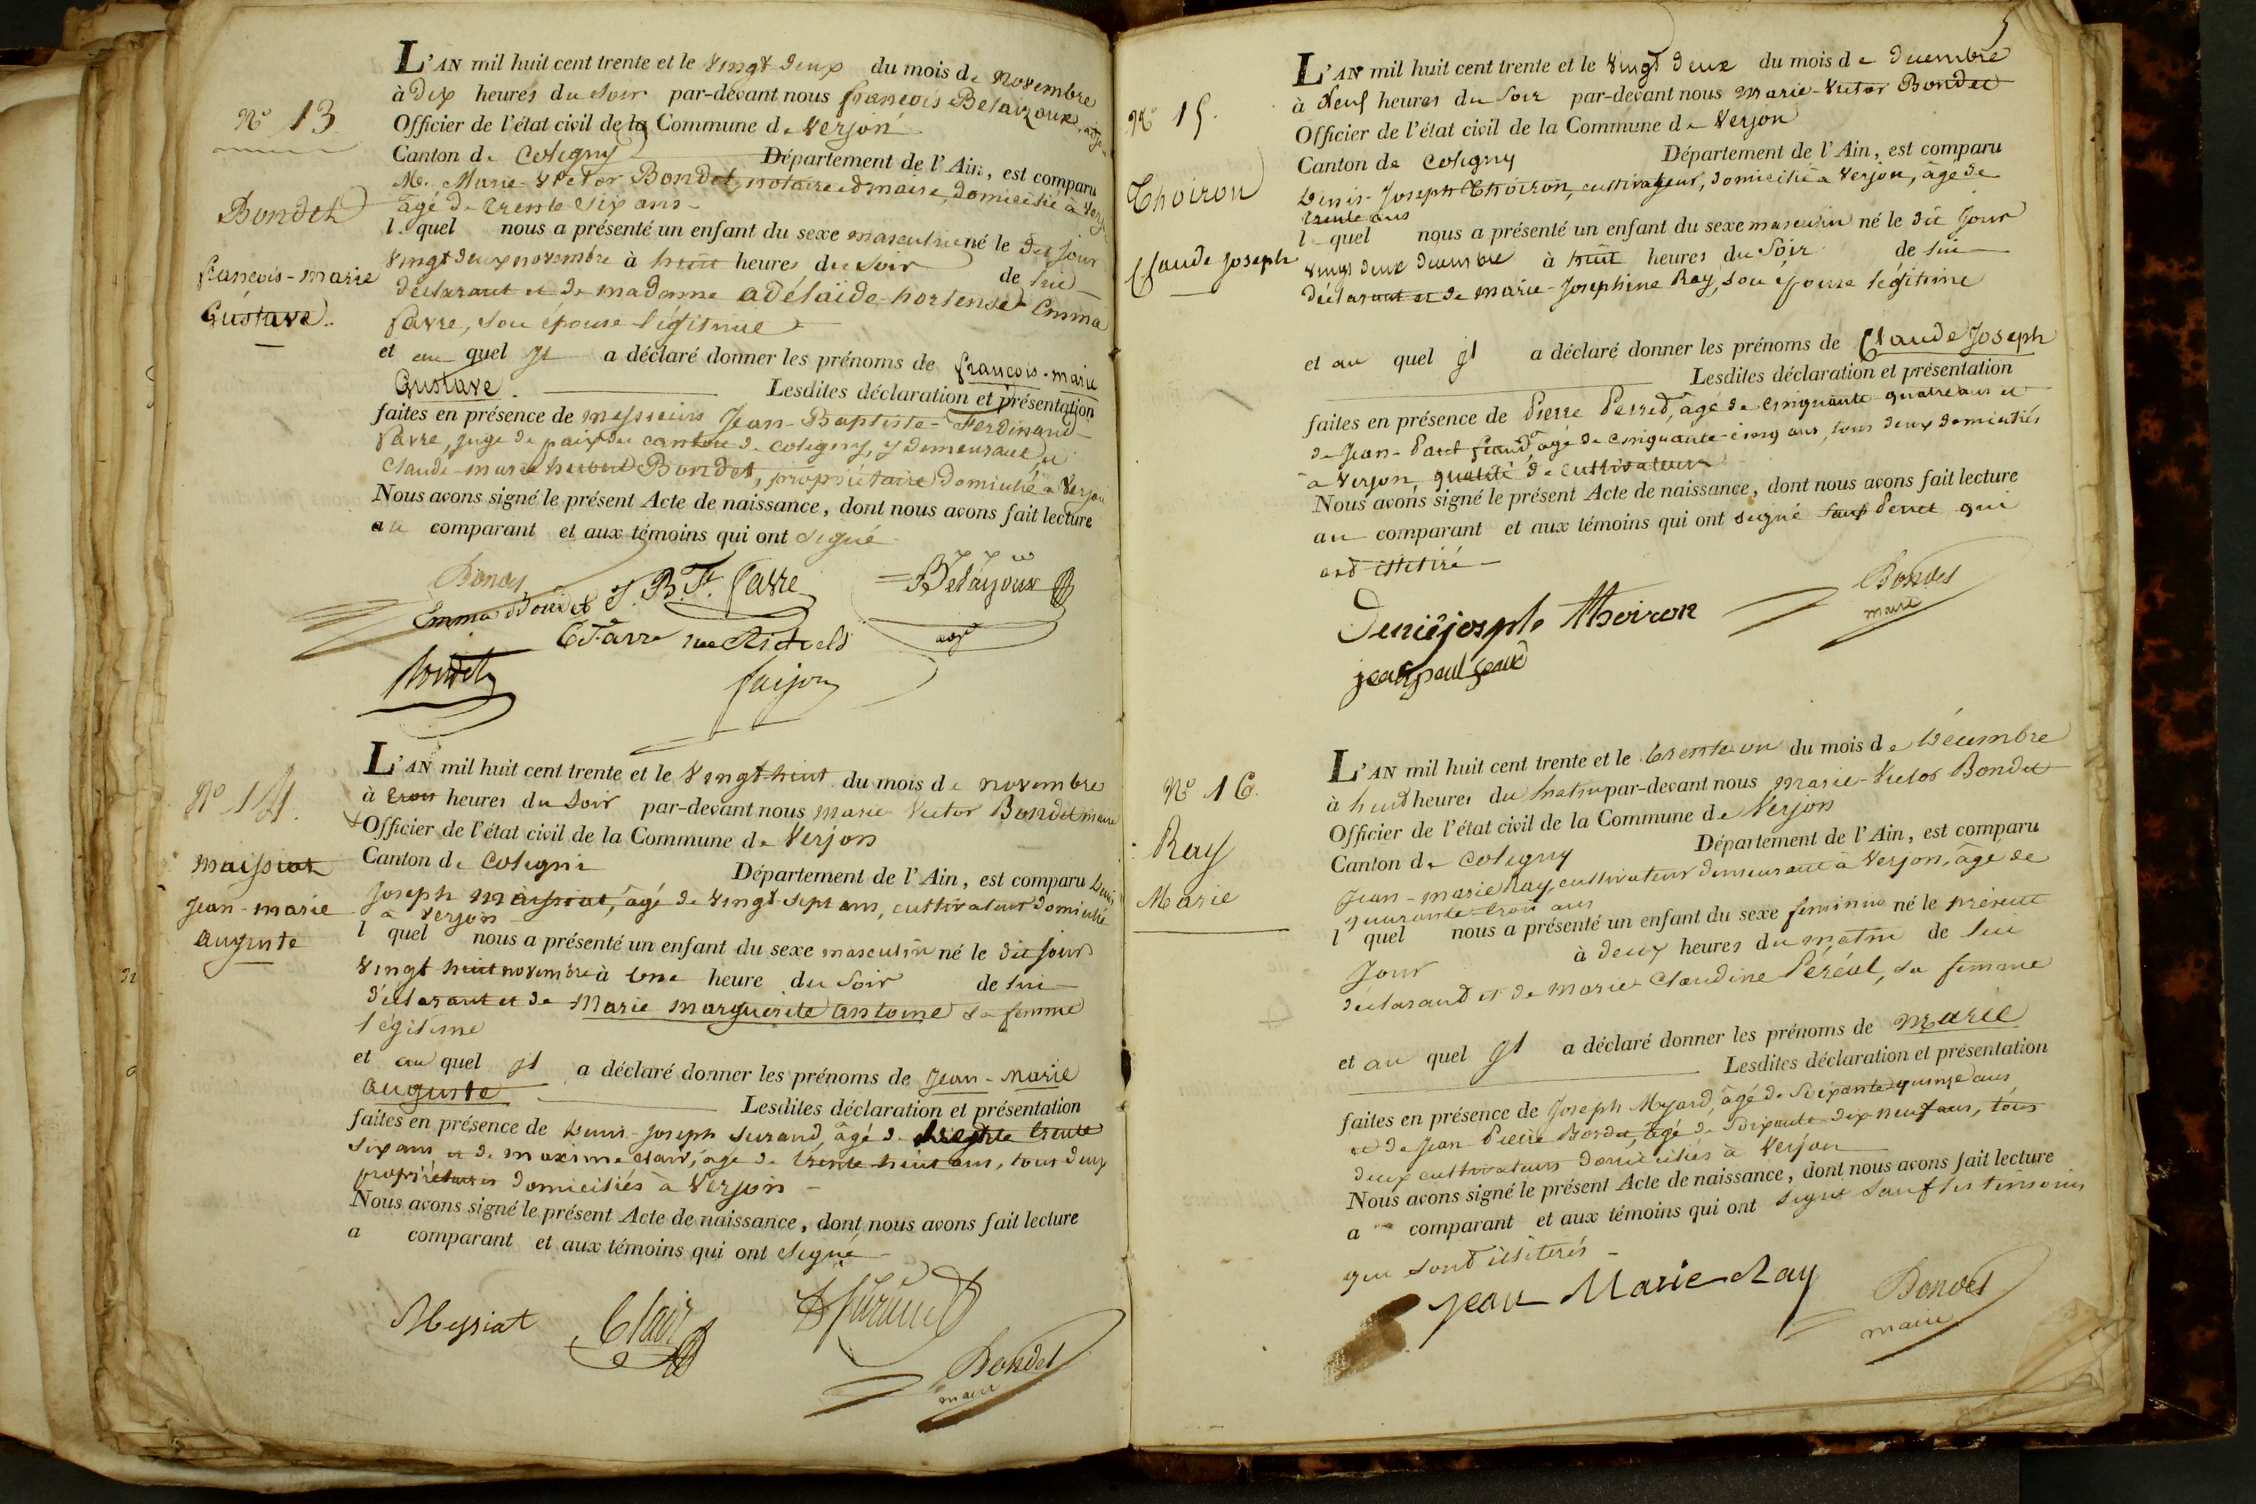 N° 13
Bondet
françois-marie
Gustave.
L'AN mil huit cent trente et le vingt deux du mois de novembre
à dix heures du soir par-devant nous françois Belaizoux, adj.
Officier de l'état civil de la Commune de Verjon
Canton de Coligny Département de l'Ain, est comparu
Me. Marie-Victor Bondet, notaire et maire, domicilié à Verjon
âgé de trente six ans
l quel nous a présenté un enfant du sexe masculin né le dit jour
vingt deux novembre à huit heures du soir de lui
déclarant et de madame adélaïde-hortense-Emma
favre, son épouse légitime
et au quel il a déclaré donner les prénoms de françois-marie
Gustave. Lesdites déclaration et présentation
faites en présence de messieurs Jean-Baptiste-Ferdinand
favre, juge de paix du canton de coligny, y demeurant, et
Claude-marie Bondet, propriétaire domicilié à Verjon
Nous avons signé le présent Acte de naissance, dont nous avons fait lecture
au comparant et aux témoins qui ont signé
Bondet
Emma Bondet J. B. F. favre
C Favre née
Bondet
N° 14.
maissiat
Jean-marie
auguste
L'AN mil huit cent trente et le vingt huit du mois de novembre
à trois heures du soir par-devant nous marie Victor Bondet maire
Officier de l'état civil de la Commune de Verjon
Canton de Coligni Département de l'Ain, est comparu Denis
Joseph maissiat, âgé de vingt-sept ans, cultivateur domicilié
à Verjon
l quel nous a présenté un enfant du sexe masculin né le dit jour
vingt huit novembre à une heure du soir de lui
déclarant et de Marie marguerite antoine sa femme
légitime
et au quel il a déclaré donner les prénoms de Jean-Marie
auguste Lesdites déclaration et présentation
faites en présence de Denis-Joseph Surand, âgé de trente
six ans et de maxime Clair, âgé de trente huit ans, tous deux
propriétaires domiciliés à Verjon
Nous avons signé le présent Acte de naissance, dont nous avons fait lecture
a comparant et aux témoins qui ont signé
Meysiat Clair
Bondet
maire
5
N° 15.
Thoiron
Claude Joseph
L'AN mil huit cent trente et le vingt deux du mois de decembre
à Neuf heures du soir par-devant nous Marie-Victor Bondet
Officier de l'état civil de la Commune de Verjon
Canton de Coligny Département de l'Ain, est comparu
Denis-Joseph Thoiron, cultivateur, domicilié à Verjon, âgé de
trente ans
l quel nous a présenté un enfant du sexe masculin né le dit jour
vingt deux decembre à huit heures du soir de lui
déclarant et de marie-Josephine Ray, son épouse légitime
et au quel il a déclaré donner les prénoms de Claude Joseph
Lesdites déclaration et présentation
faites en présence de Pierre Perret, âgé de cinquante quatre ans et
de Jean-Paul, âgé de cinquante-cinq ans, tous deux domiciliés
à Verjon, qualité de cultivateurs
Nous avons signé le présent Acte de naissance, dont nous avons fait lecture
au comparant et aux témoins qui ont signé sauf Perret qui
est illitiré
Denis joseph thoiron Bondet
maire
jean paul
N° 16.
Ray
Marie
L'AN mil huit cent trente et le trente un du mois de Décembre
à huit heures du matin par-devant nous Marie-Victor Bondet
Officier de l'état civil de la Commune de Verjon
Canton de Coligny Département de l'Ain, est comparu
Jean-marie Ray, cultivateur demeurant à Verjon, âgé de
quarante-trois ans
l quel nous a présenté un enfant du sexe feminin né le présent
Jour à deux heures du matin de lui
déclarant et de Marie Claudine Péréal, sa femme
et au quel il a déclaré donner les prénoms de Marie
Lesdites déclaration et présentation
faites en présence de Joseph Myard, âgé de soixante quinze ans
et de Jean Pierre Bordet, âgé de soixante dix neuf ans, tous
deux cultivateurs domiciliés à Verjon
Nous avons signé le présent Acte de naissance, dont nous avons fait lecture
a comparant et aux témoins qui ont signé sauf les témoins
qui sont illitirés
Jean Marie Ray Bondet
maire